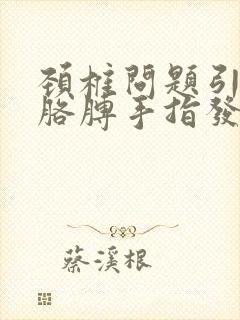 頚椎問題引
胳膊手指發
蔡溪根